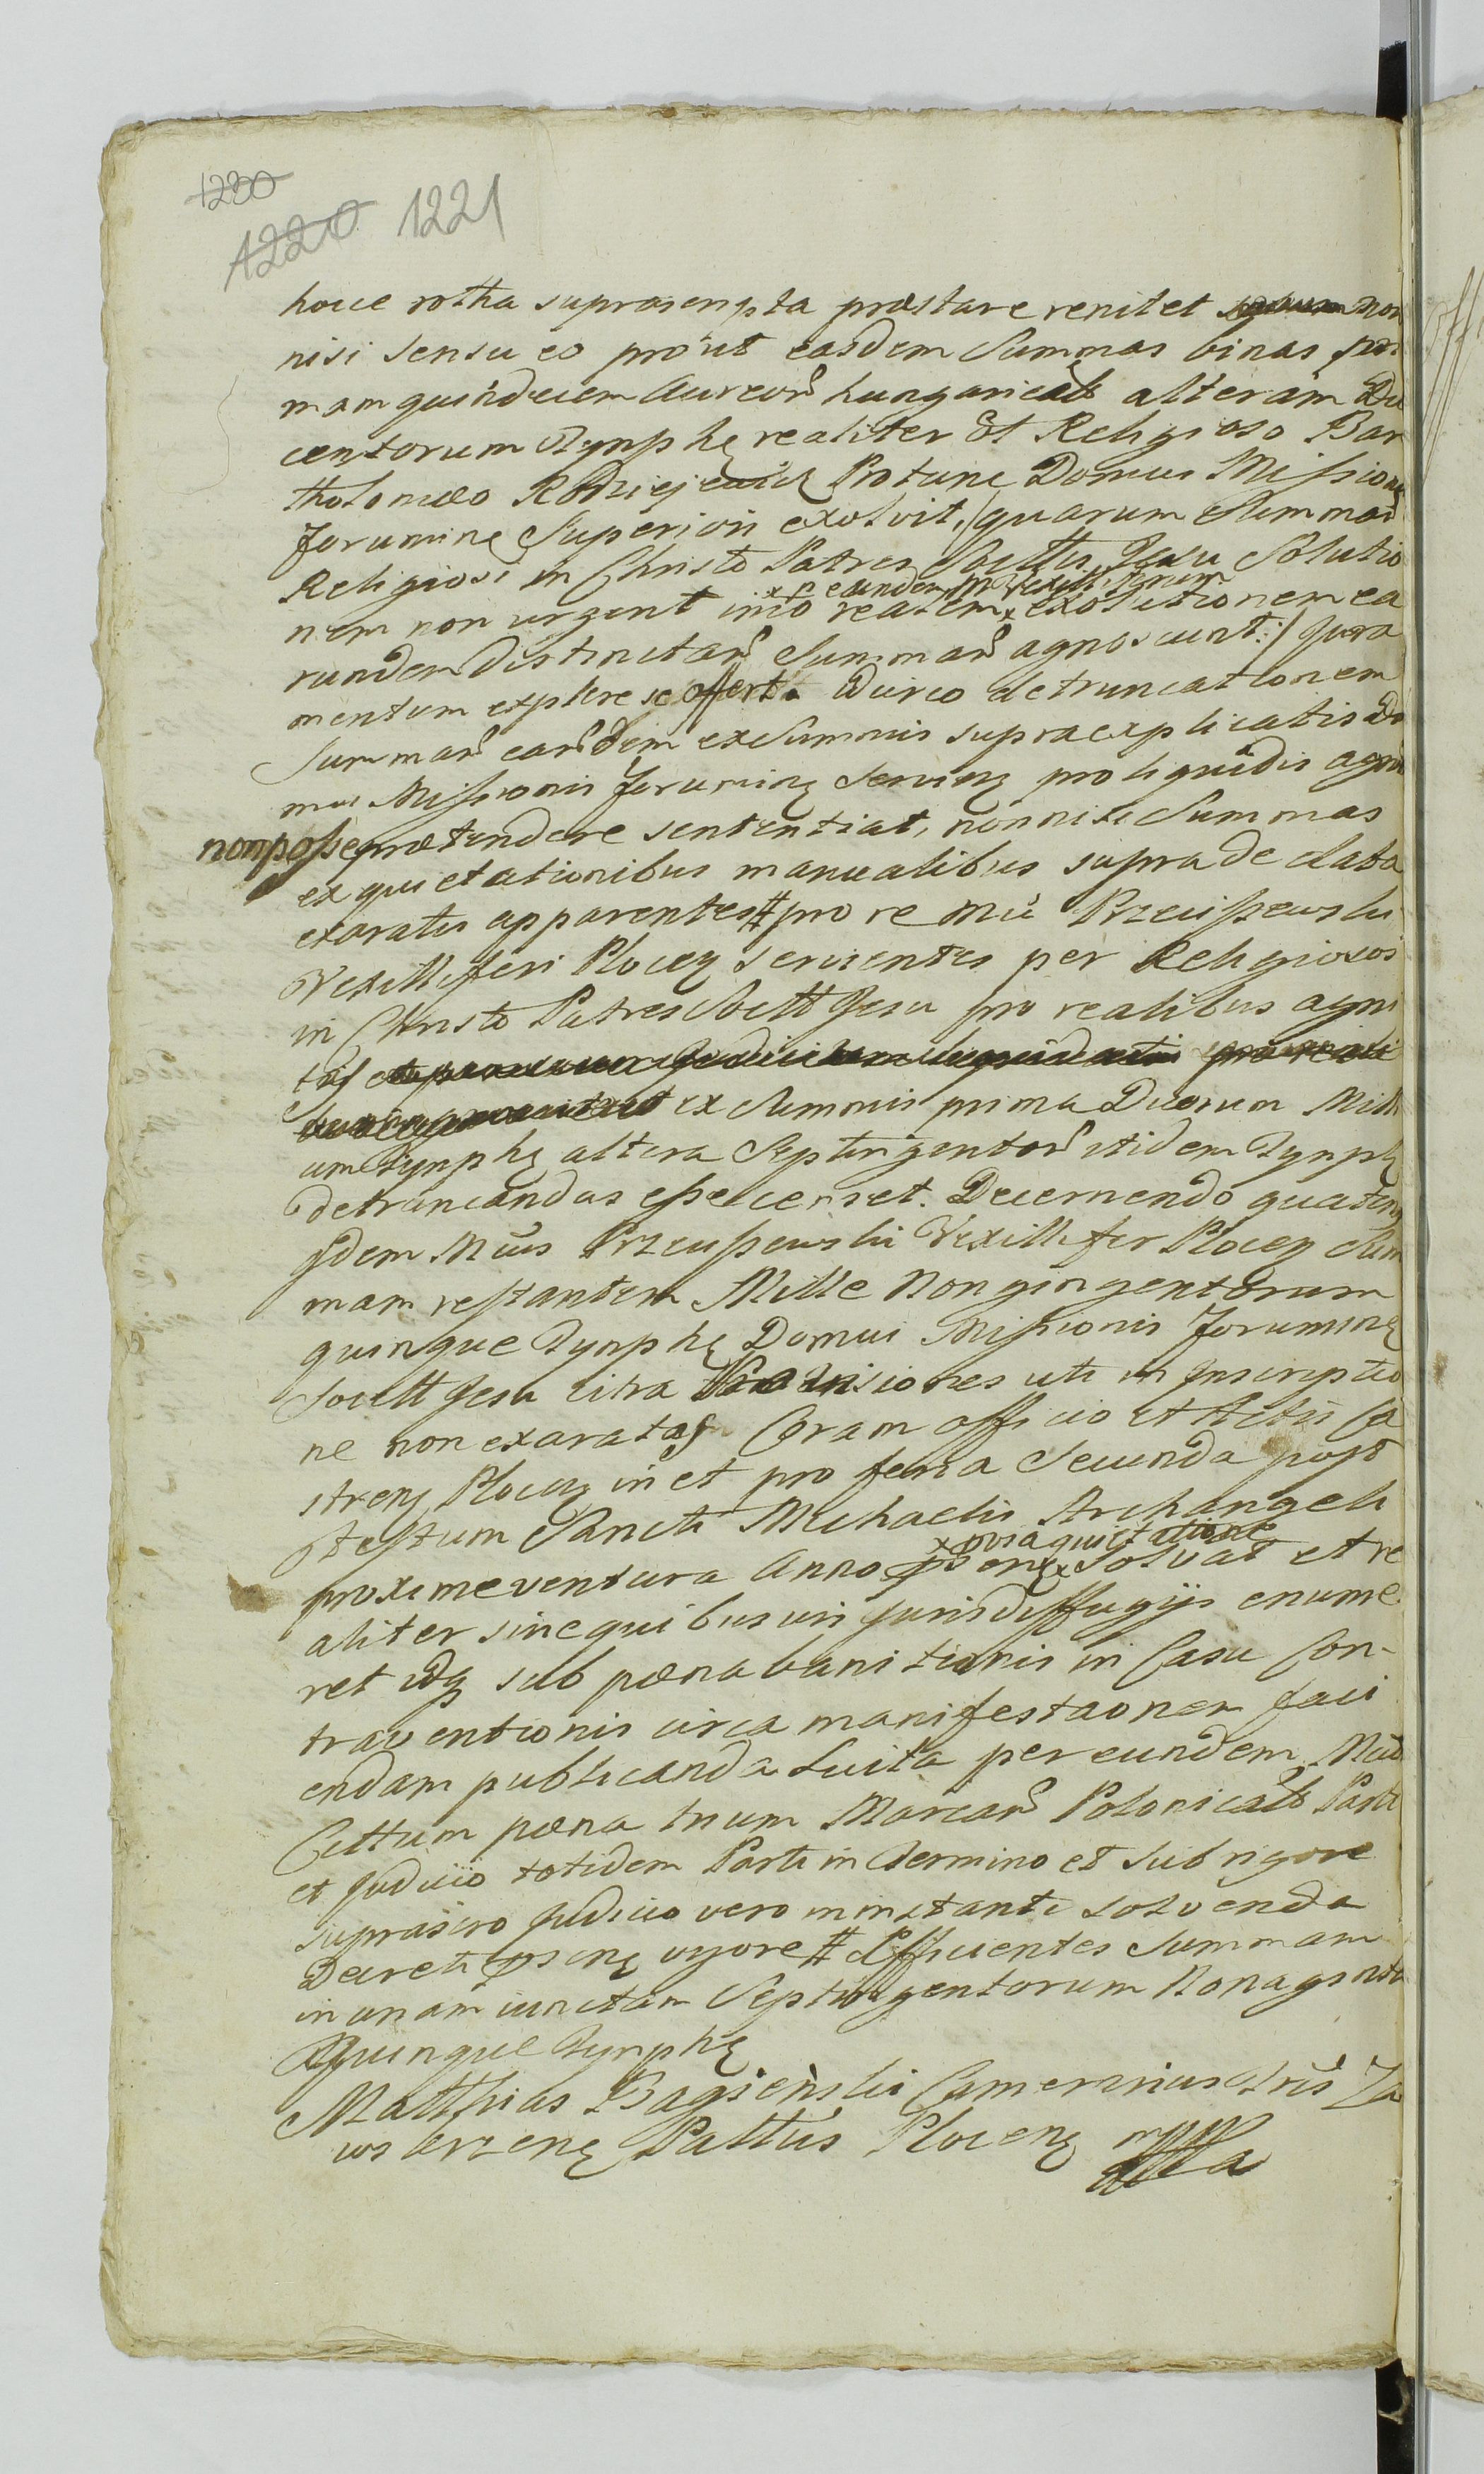 1230
1220 1221
hocce rotha suprascripta præstare renitet non
nisi sensu eo prout easdem Summas binas pri
mam quindecem Aureor̃ hungaricalẽ alteram Du
centorum Tynphę realiter Et Religioso Bar
tholomæo Protunc Domus Missionis
Foruminę Superiori exolvit, /quarum Summar̃
Religiosi in Christo Patres Socttis Jesu Solutio
nem non urgent imo realem x exolutionem ea
x p eundem M Vexilliferum
rundem distinctar̃ Summar̃ agnoscunt:/ Jura
mentum explere se offert. Idcirco detruncationem
Summar̃ ear̃dem ex Summis supraexplicatis Do
mui Missionis Foruminę Servienę pro liquidis agni
non posse prætendere sententiat, nonnisi Summas
ex quietationibus manualibus supra de data
exaratis apparentes # pro re Mci Przeciszewski
Vexilliferi Plocen servientes per Religiosos
in Christo Patres Soctt Jesu pro realibus agni
tas
ex Summis prima Duorum Milli
um Tynphę altera Septingentor̃ itidem Tynphę
detruncandas esse censet. Decernendo quatenus
Idem Mcus Przeciszewski Vexillifer Plocen Sum
mam restantem Mille Nongingentorum
quinque Tynphę Domui Missionis Foruminę
Soctt Jesu citra Provisiones uti in Inscriptio
ne non exaratas Coram officio et Actis Ca
strenę Plocen in et pro feria Secunda post
Festum Sancti Michaelis Archangeli
x pvia quietatione
proxime ventura Anno psenti x Solvat et re
aliter sine quibusvis juris diffugijs enume
ret idq sub pœna banitionis in Casu Con-
traventionis circa manifestaonem faci
endam publicanda Luita per eundem Mcũ
Cittum pœna trium Marcar̃ Polonicalẽ Parti
et Judicio totidem Parti in Termino et sub rigore
suprascro Judicio vero in instanti solvenda
Decreti psentę vigore # Efficientes Summam
in unam iunctam Septuingentorum Nonaginta
Quinque Tynphę
Matthias Bagieński Camerarius Tris Za
wskrzenę Pallus Plocenę mppa